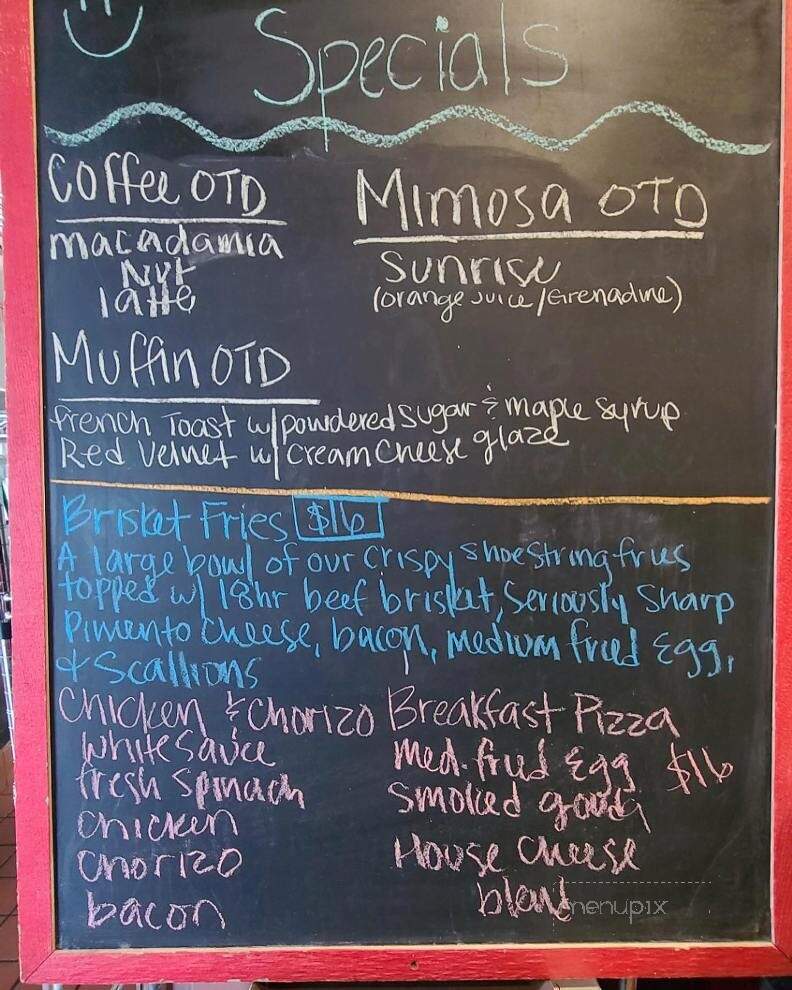 Specials
Coffee OTD
macadamia
Nut
latte
Mimosa OTD
Sunrise
(orange Juice/Grenadine)
Muffin OTD
French Toast w/ powdered sugar & maple syrup
Red Velvet w/ cream cheese glaze
Brisket Fries $16
A large bowl of our crispy shoestring fries
topped w/ 18hr beef brisket, Seriously Sharp
Pimento Cheese, bacon, medium fried egg,
& Scallions
Chicken & Chorizo Breakfast Pizza
White Sauce
fresh Spinach
Chicken
Chorizo
bacon
Med. fried Egg $16
Smoked gouda
House cheese
blend
menupix